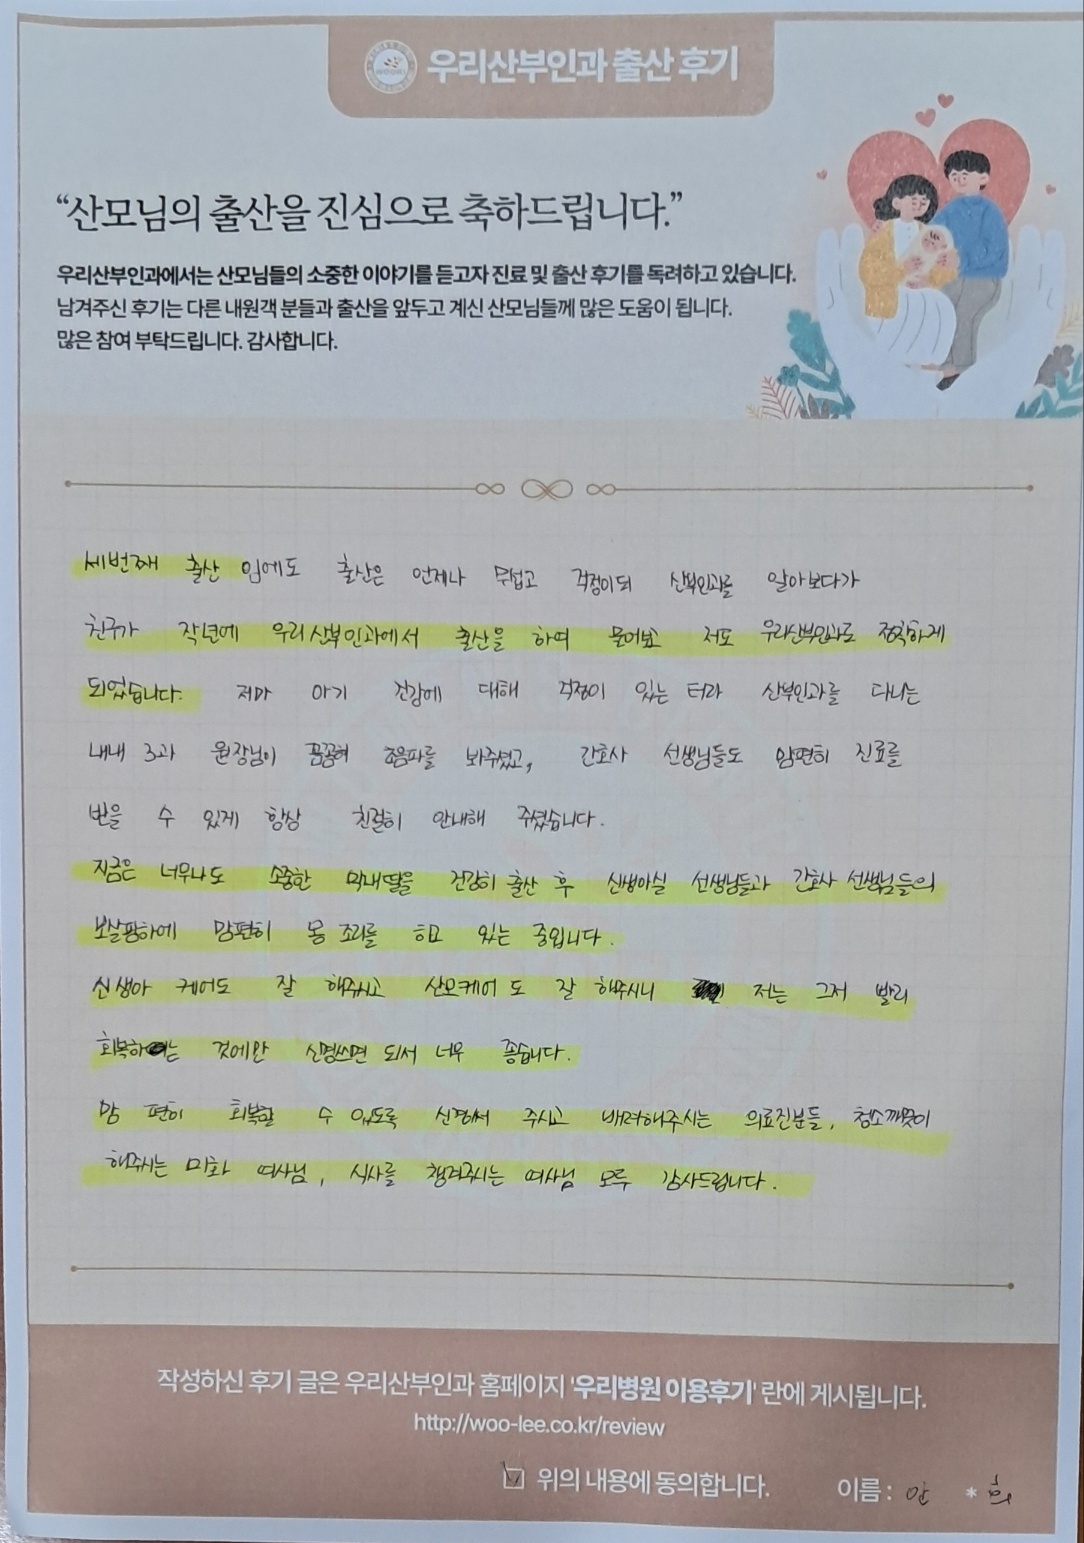 우리산부인과 출산 후기
“산모님의 출산을 진심으로 축하드립니다.”
우리산부인과에서는 산모님들의 소중한 이야기를 듣고자 진료 및 출산 후기를 독려하고 있습니다.
남겨주신 후기는 다른 내원객 분들과 출산을 앞두고 계신 산모님들께 많은 도움이 됩니다.
많은 참여 부탁드립니다. 감사합니다.
세번째 출산 임에도 출산은 언제나 무섭고 걱정이되 산부인과를 알아보다가
친구가 작년에 우리산부인과에서 출산을 하여 물어보고 저도 우리산부인과로 정착하게
되었습니다. 저마 아기 건강에 대해 걱정이 있는 터라 산부인과를 다니는
내내 3과 원장님이 꼼꼼히 초음파를 봐주셨고, 간호사 선생님들도 맘편히 진료를
받을 수 있게 항상 친절히 안내해 주셨습니다.
지금은 너무나도 소중한 막내딸을 건강히 출산 후 신생아실 선생님들과 간호사 선생님들의
보살핌하에 맘편히 몸 조리를 하고 있는 중입니다.
신생아 케어도 잘 해주시고 산모케어도 잘 해주시니 저는 그저 빨리
회복하는 것에만 신경쓰면 되서 너무 좋습니다.
맘 편히 회복할 수 있도록 신경써 주시고 배려해주시는 의료진분들, 청소깨끗이
해주시는 미화 여사님, 식사를 챙겨주시는 여사님 모두 감사드립니다.
작성하신 후기 글은 우리산부인과 홈페이지 '우리병원 이용후기' 란에 게시됩니다.
http://woo-lee.co.kr/review
위의 내용에 동의합니다. 이름 : 안 * 희